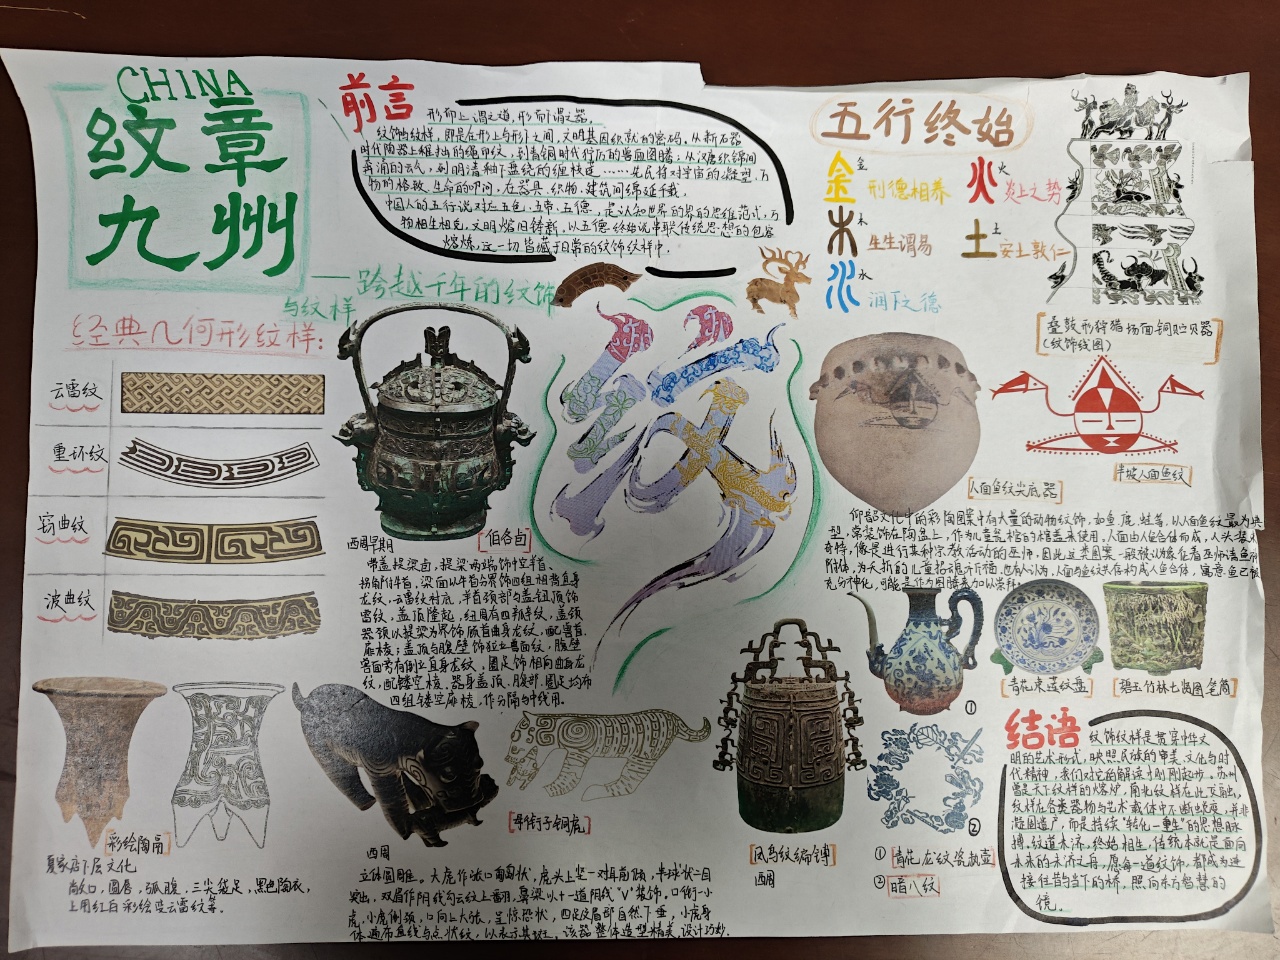 CHINA
纹章
九州
——跨越千年的纹饰
与纹样
前言
形而上谓之道,形而下谓之器。
纹饰与纹样,即是在形上与形下之间,文明基因织就的密码。从新石器
时代陶器上稚拙的绳甲纹,到青铜时代狞厉的兽面图腾;从汉唐织锦间
奔涌的云气,到明清釉下盘绕的缠枝莲……先民将对宇宙的凝望、万
物的格致、生命的叩问,在器具、织物、建筑间绵延千载。
中国人的五行说对应五色、五帝、五德,是认知世界的思维范式,万
物相生相克,文明熔旧铸新,以五德终始说串联传统思想的包容
熔炼,这一切皆藏于日常的纹饰纹样中。
五行终始
金 金 刑德相养
火 火 炎上之势
木 木 生生谓易
土 土 安土敦仁
水 水 润下之德
叠鼓形狩猎场面铜贮贝器
(纹饰线图)
经典几何形纹样:
云雷纹
重环纹
窃曲纹
波曲纹
纹
西周早期
伯各卣
带盖提梁卣,提梁两端饰中空羊首,
拐角附牛首,梁面以牛首分界饰四组相背直身
龙纹,云雷纹衬底,羊首颈部与盖钮顶饰
雷纹,盖顶隆起,钮周有四瓣纹,盖颈
器颈以提梁为界饰顾首曲身龙纹,配兽首
扉棱;盖顶与腹壁饰独立兽面纹,腹壁
兽面旁有倒立直身龙纹,圈足饰相向曲身龙
纹,配镂空棱。器身盖顶、腹部、圈足均布
四组镂空扉棱,作分隔与中线用。
人面鱼纹尖底器
半坡人面鱼纹
仰韶文化中的彩陶图案中有大量的动物纹饰,如鱼、鹿、蛙等,以人面鱼纹最为典
型,常装饰在陶盆上,作为儿童瓮棺的棺盖来使用,人面由人鱼合体而成,人头装束
奇特,像是进行某种宗教活动的巫师。因此,这类图案一般被认为象征着巫师请鱼
附体,为夭折的儿童招魂祈福,也有人认为,人面与鱼纹共存构成人鱼合体,寓意鱼已被
充分神化,可能是作为图腾来加以崇拜。
①
青花束莲纹盘
碧玉竹林七贤图笔筒
②
① 青花龙纹瓷执壶
② 暗八纹
彩绘陶鬲
夏家店下层文化
敞口,圆唇,弧腹,三尖袋足,黑色陶衣,
上用红白彩绘变云雷纹等。
母衔子铜虎
西周
立体圆雕。大虎作波口匍匐状,虎头上竖一对耳前倾,半球状二目
突出,双眉作阴线勾云纹上翻,鼻梁以十一道阴线“V”装饰。口衔一小
虎,小虎侧颈,口向上大张,呈惊恐状,四足及眉部自然下垂,小虎身
体遍布直线与点状纹,以表示其斑,该器整体造型精美,设计巧妙。
凤鸟纹编镈
西周
结语
纹饰纹样是贯穿中华文
明的艺术形式,映照民族的审美、文化与时
代精神,我们对它的解读才刚刚起步。苏州
曾是天下纹样的熔炉,南北纹样在此交融,
纹样在各类器物与艺术载体中不断出现,并非
凝固遗产,而是持续“转化—重生”的思想脉
搏。纹道未济,终始相生,传统本就是面向
未来的未济之舟,愿每一道纹饰,都成为连
接往昔与当下的桥,照向东方智慧的
镜。